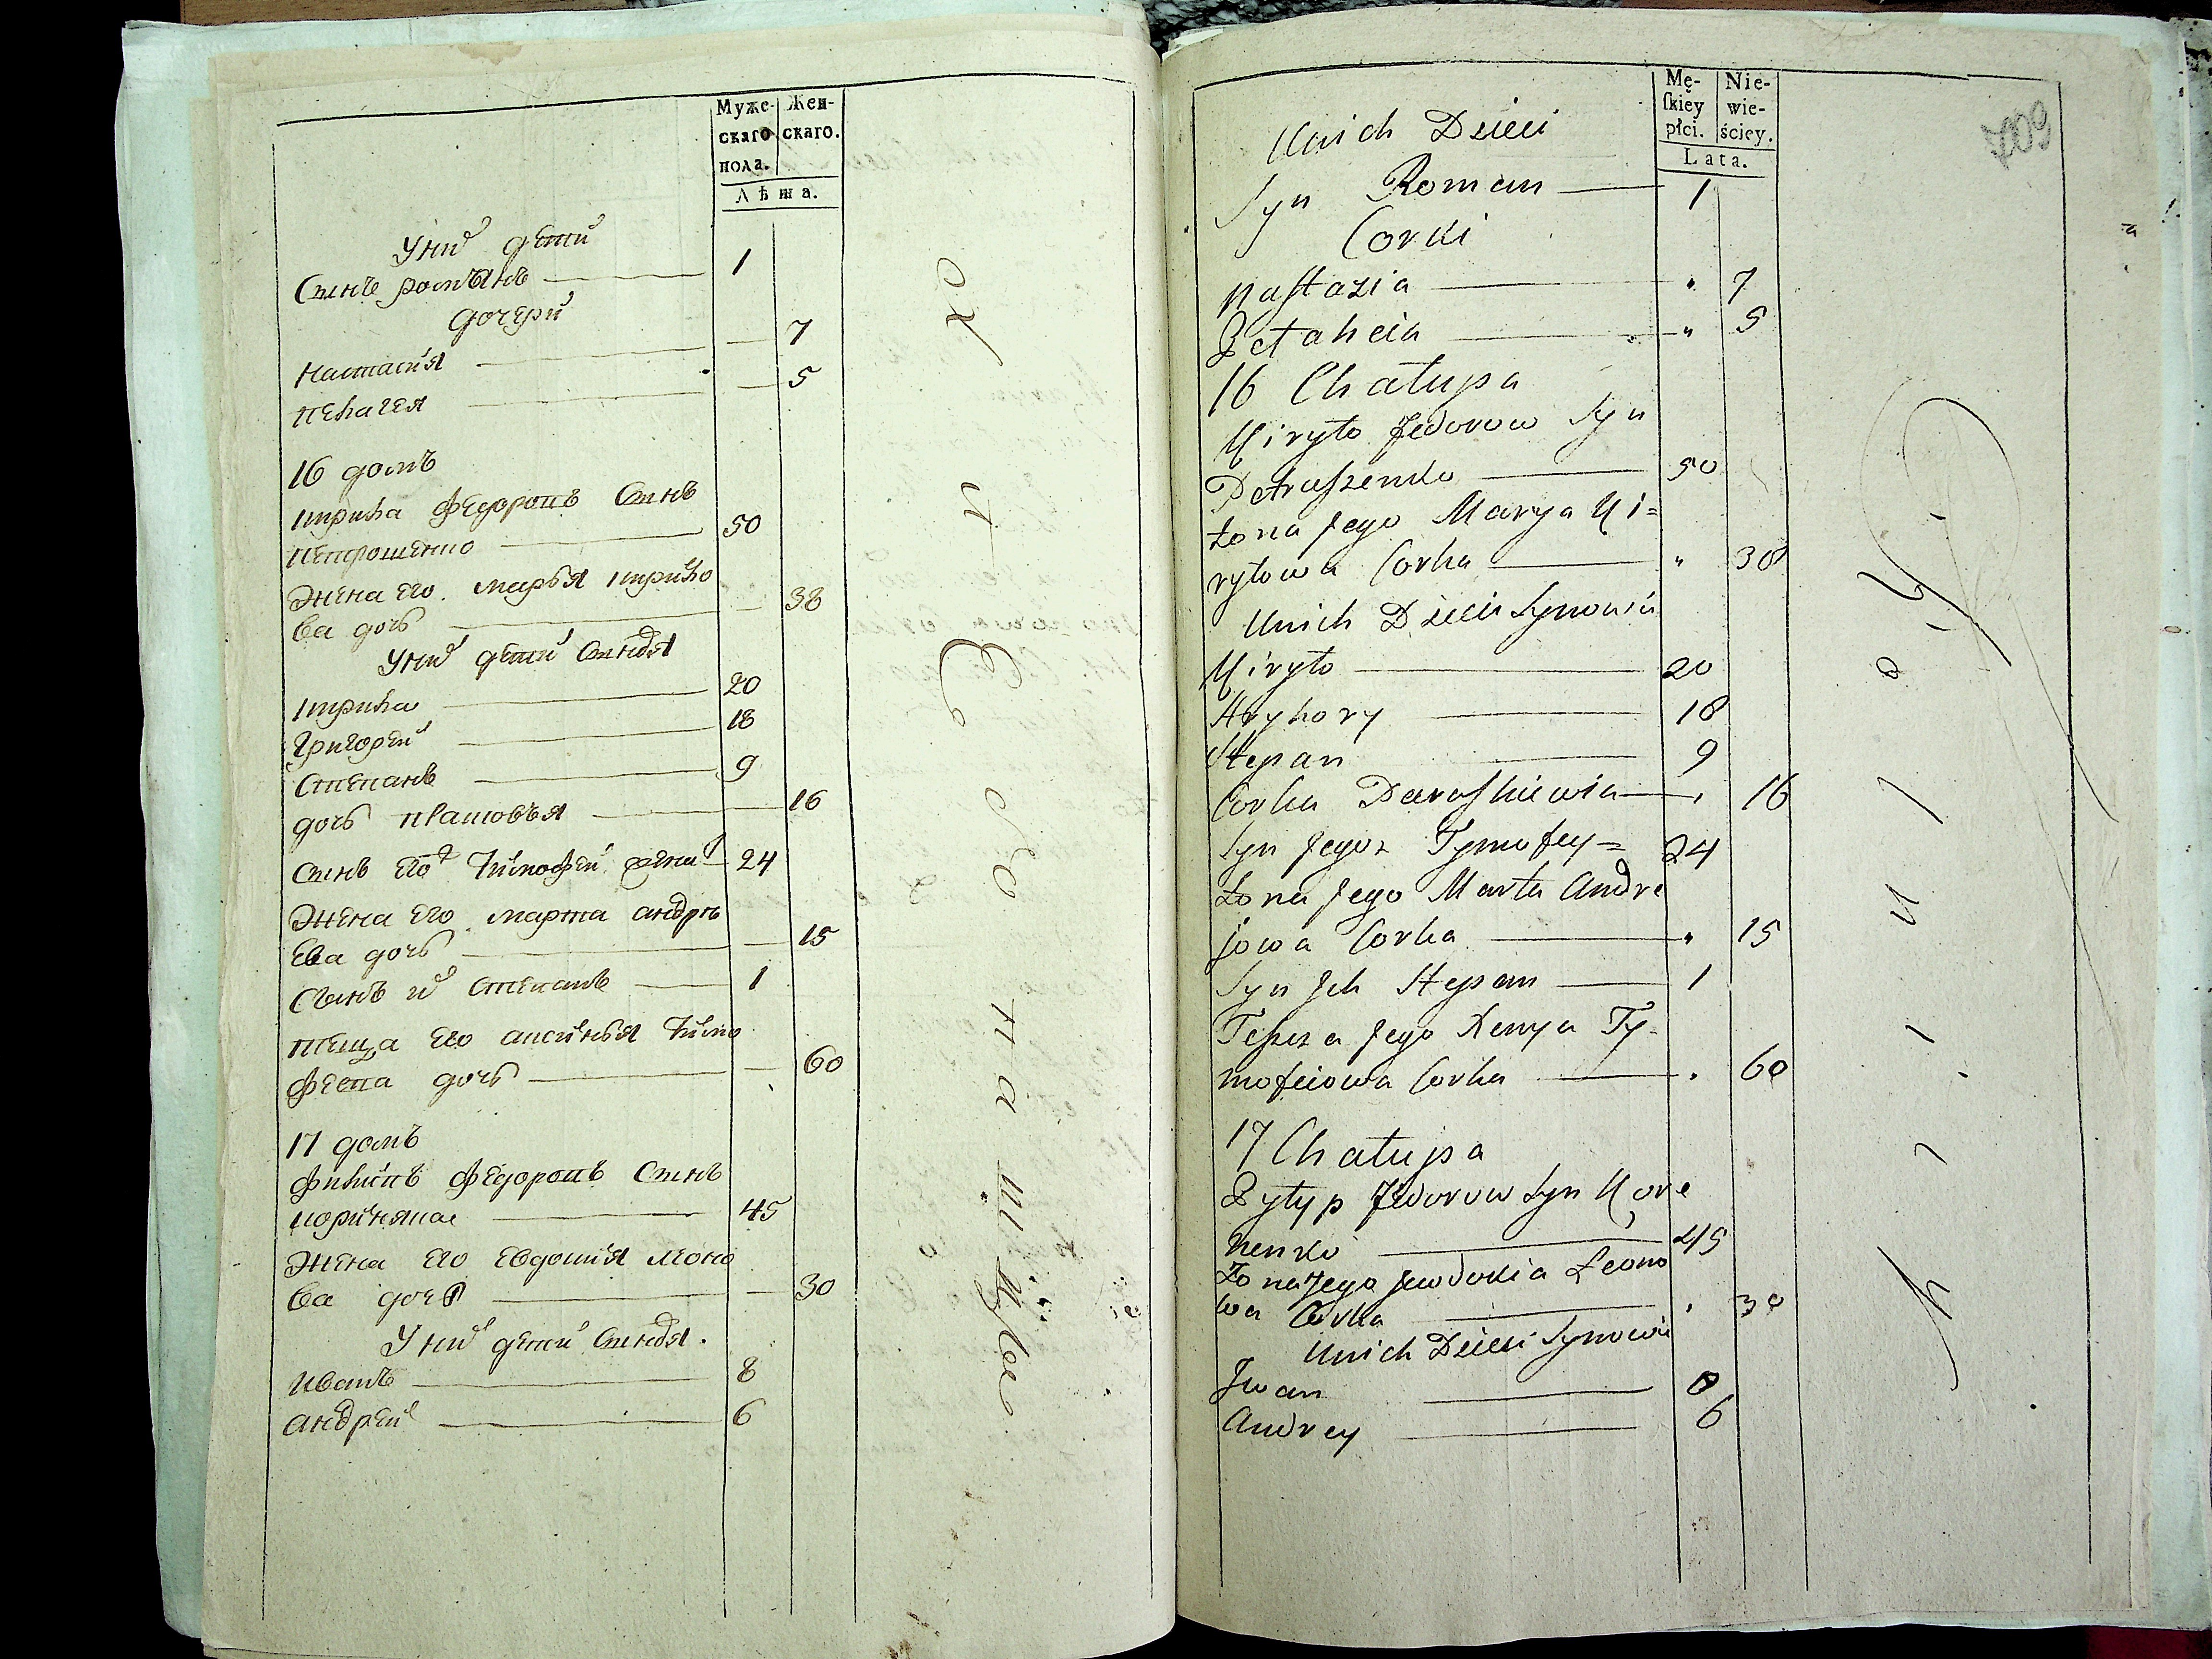 Муже-
скаго
пола.
Жен-
скаго.
Лѣта.
У них дети
Сынъ романъ — 1
дочери
настасия — 7
пелагея — 5
16 домъ
кирила федоровъ Сынъ
петрошенко — 50
жена его марья кирило
ва дочь — 38
У них дети Сыновя
кирила — 20
григорей — 18
степанъ — 9
дочь — 16
сынъ его тимофей — 24
жена его марта андре
ева дочь — 15
Сынъ их степанъ — 1
теща его аксинья тимо
феева дочь — 60
17 домъ
филипъ федоровъ Сынъ
— 45
жена его евдокия леоно
ва дочь — 30
У них дети Сыновя
иванъ — 8
андрей — 6
Mę-
ſkiey
płci.
Nie-
wie-
ściey.
Lata.
709
Unich Dzieci
Syn Roman — 1
Corki
Nastazia — " 7
Pełaheia — " 5
16 Chałupa
Kiryło Fedorow Syn
Petruszenko — 50
Żona Jego Marya Ki=
ryłowa Corka — " 38
Unich Dzieci Synowie
Kiryło — 20
Hryhory — 18
Stepan — 9
Corka Paraskiewia — " 16
Syn Jego 2 Tymofey = 24
Żona Jego Marta Andre
jowa Corka — " 15
Syn Jch Stepan — 1
Teszcza Jego Xenya Ty-
mofeiowa Corka — " 60
17 Chałupa
Pyłyp Fedorow Syn Kore
nenko — 45
Żona Jego Jewdokia Leono
wa Corka — " 30
Unich Dzieci Synowie
Jwan — 8
Andrey — 6